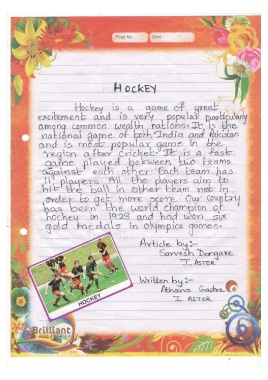 Page No.
Date
HOCKEY
Hockey is a game of great
excitement and is very popular particularly
among common wealth nations. It is the
national game of both India and Pakistan
and is most popular game in the
region after cricket. It is a fast
game played between two teams
against each other. Each team has
11 players. All the players aim to
hit the ball in other team net in
order to get more score. Our country
has been the world champion of
hockey in 1928 and had won six
gold medals in olympics games.
Article by:-
Sarvesh Dongare
I ASTER
Written by:-
Atharva Gadre
I ASTER
HOCKEY
Brilliant
6